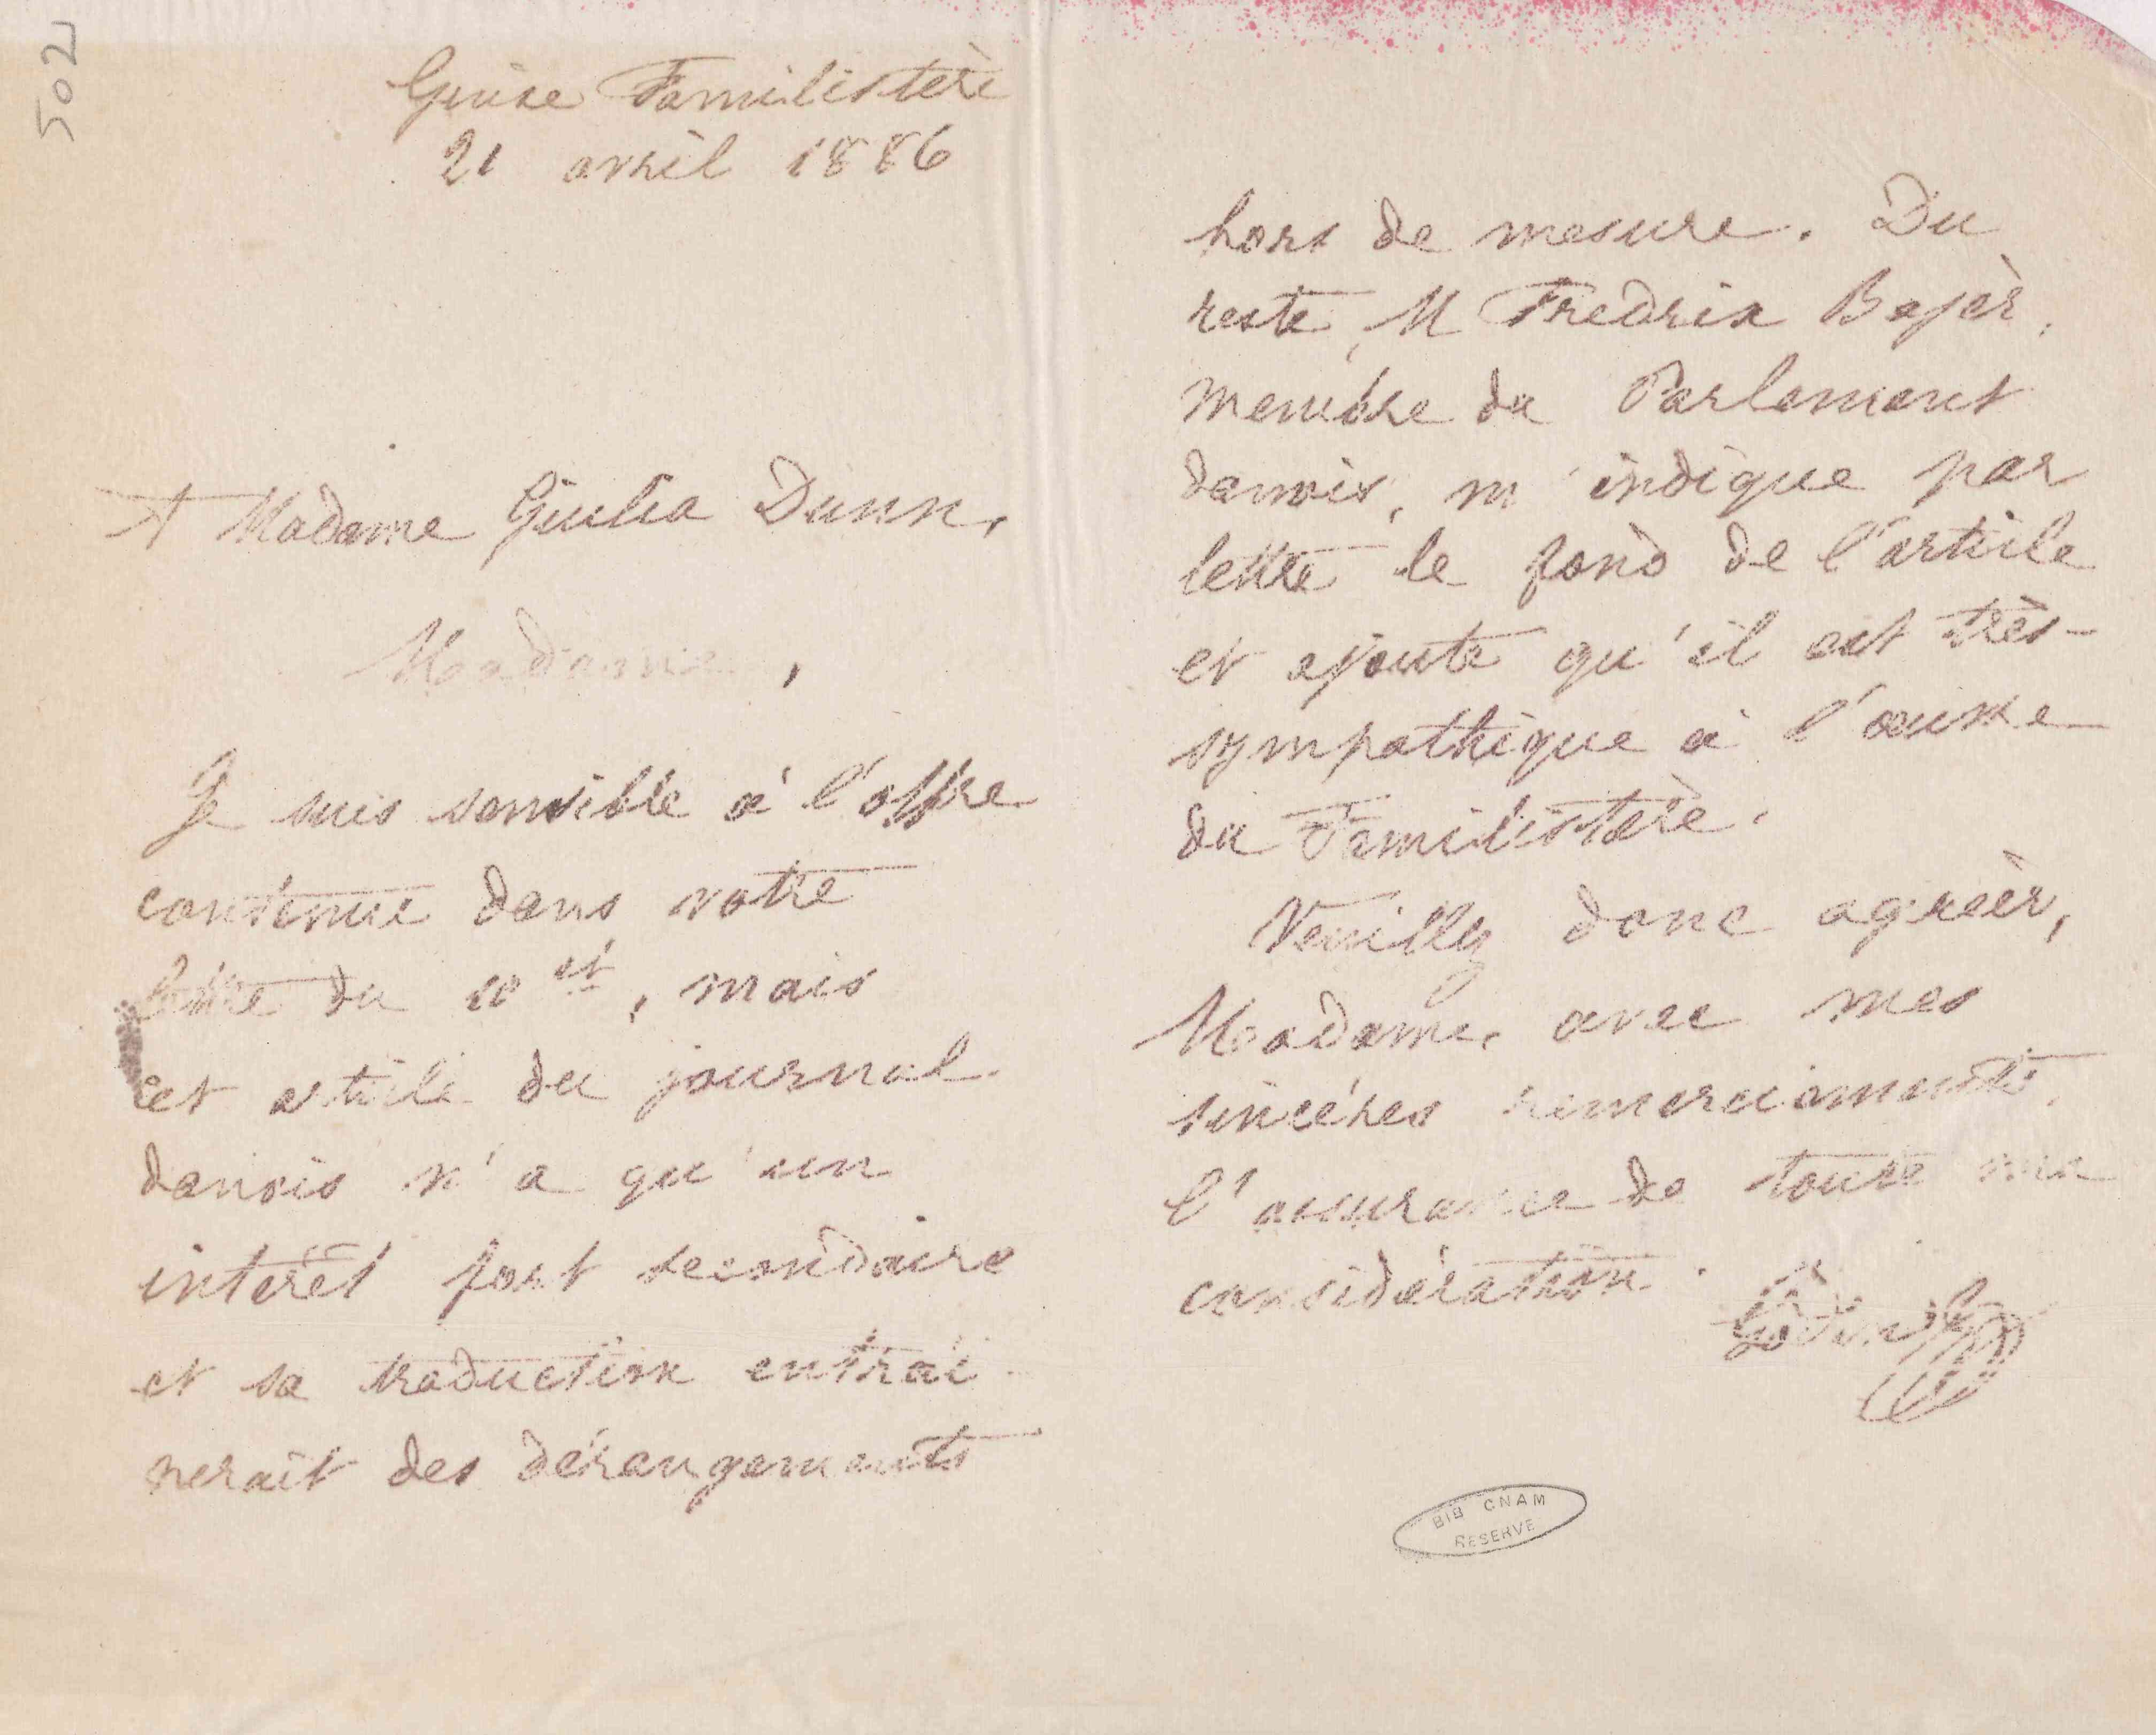 502
Guise Familistère
21 avril 1886
A Madame Giulia Dunn,
Madame,
Je suis sensible à l'offre
contenue dans votre
lettre du 10 ct, mais
cet article du journal
danois n'a qu'un
intérêt fort secondaire
et sa traduction entraî-
nerait des dérangements
hors de mesure. Du
reste, M Fredrix Bajèr,
membre du Parlement
danois, m'indique par
lettre le fond de l'article
et ajoute qu'il est très-
sympathique à l'œuvre
du Familistère.
Veuillez donc agréer,
Madame, avec mes
sincères remerciements,
l'assurance de toute ma
considération.
Godin
BIB CNAM
RESERVE